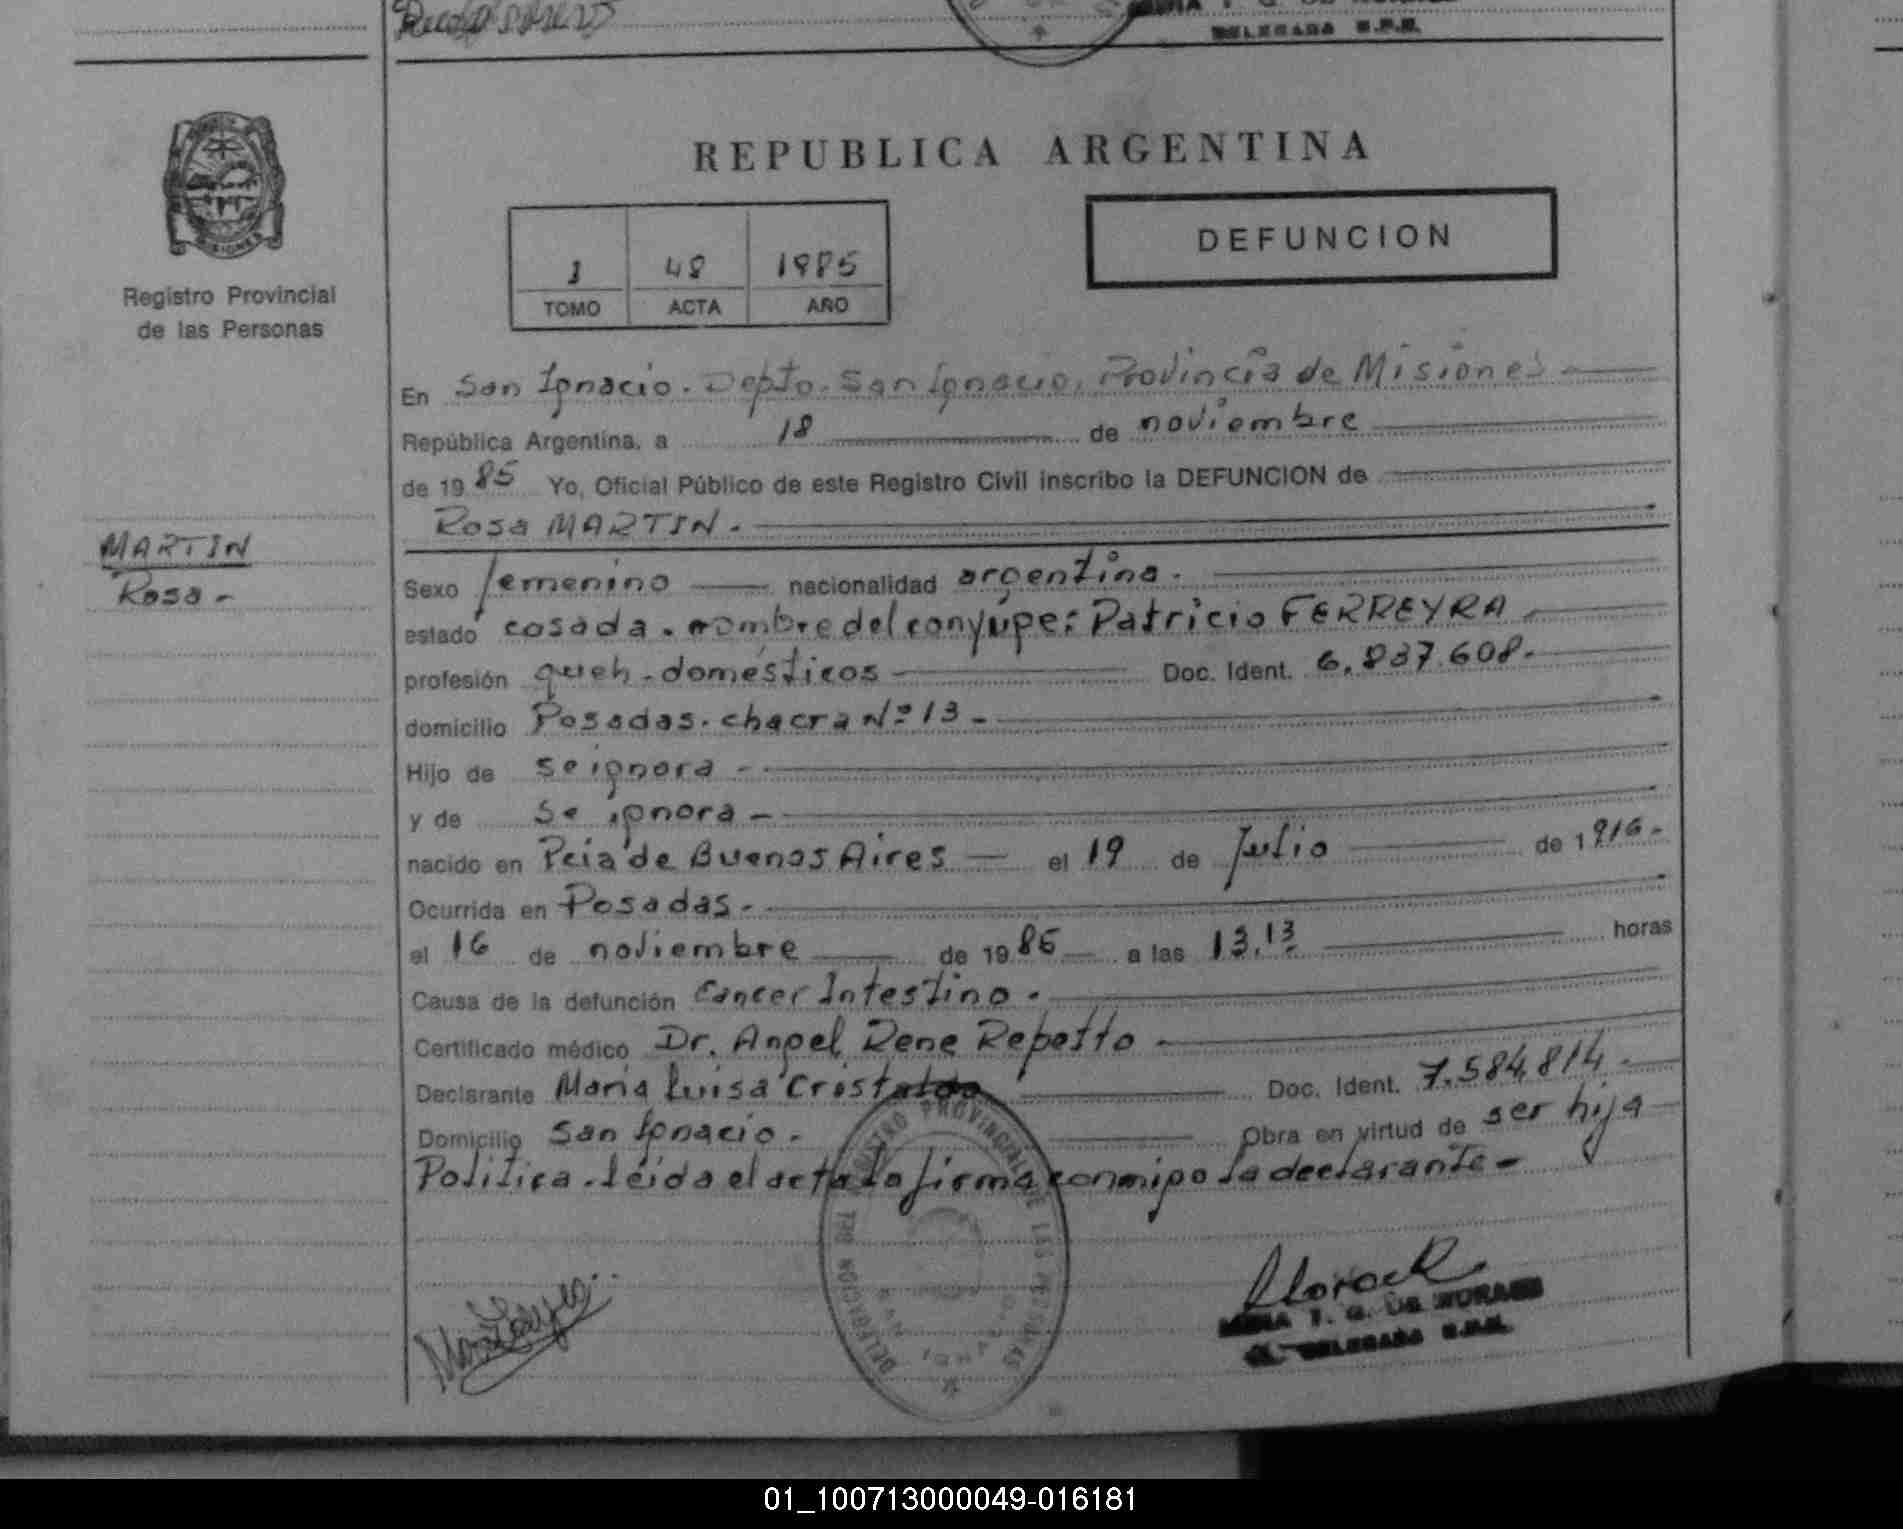 DELEGADA R.P.P.
REPUBLICA ARGENTINA
DEFUNCION
1 48 1985
TOMO ACTA AÑO
MISIONES
Registro Provincial
de las Personas
En San Ignacio. Depto. San Ignacio, Provincia de Misiones
República Argentina, a 18 de noviembre
de 1985 Yo, Oficial Público de este Registro Civil inscribo la DEFUNCION de
Rosa MARTIN.
MARTIN
Rosa -
Sexo femenino nacionalidad argentina.
estado casada. nombre del conyuge: Patricio FERREYRA
profesión queh. domésticos Doc. Ident. 6.837.608.
domicilio Posadas. chacra Nº 13 -
Hijo de se ignora -
y de se ignora -
nacido en Pcia de Buenos Aires el 19 de Julio de 1916.
Ocurrida en Posadas.
el 16 de noviembre de 1985 a las 13,13 horas
Causa de la defunción Cancer Intestino.
Certificado médico Dr. Angel Rene Repetto
Declarante Maria Luisa Cristaldo Doc. Ident. 7.584.814
Domicilio San Ignacio. Obra en virtud de ser hija
Politica. leida el acta la firma conmigo la declarante -
REGISTRO PROVINCIAL DE LAS PERSONAS
DELEGACION
T. G. DE MORAES
DELEGADA
01_100713000049-016181